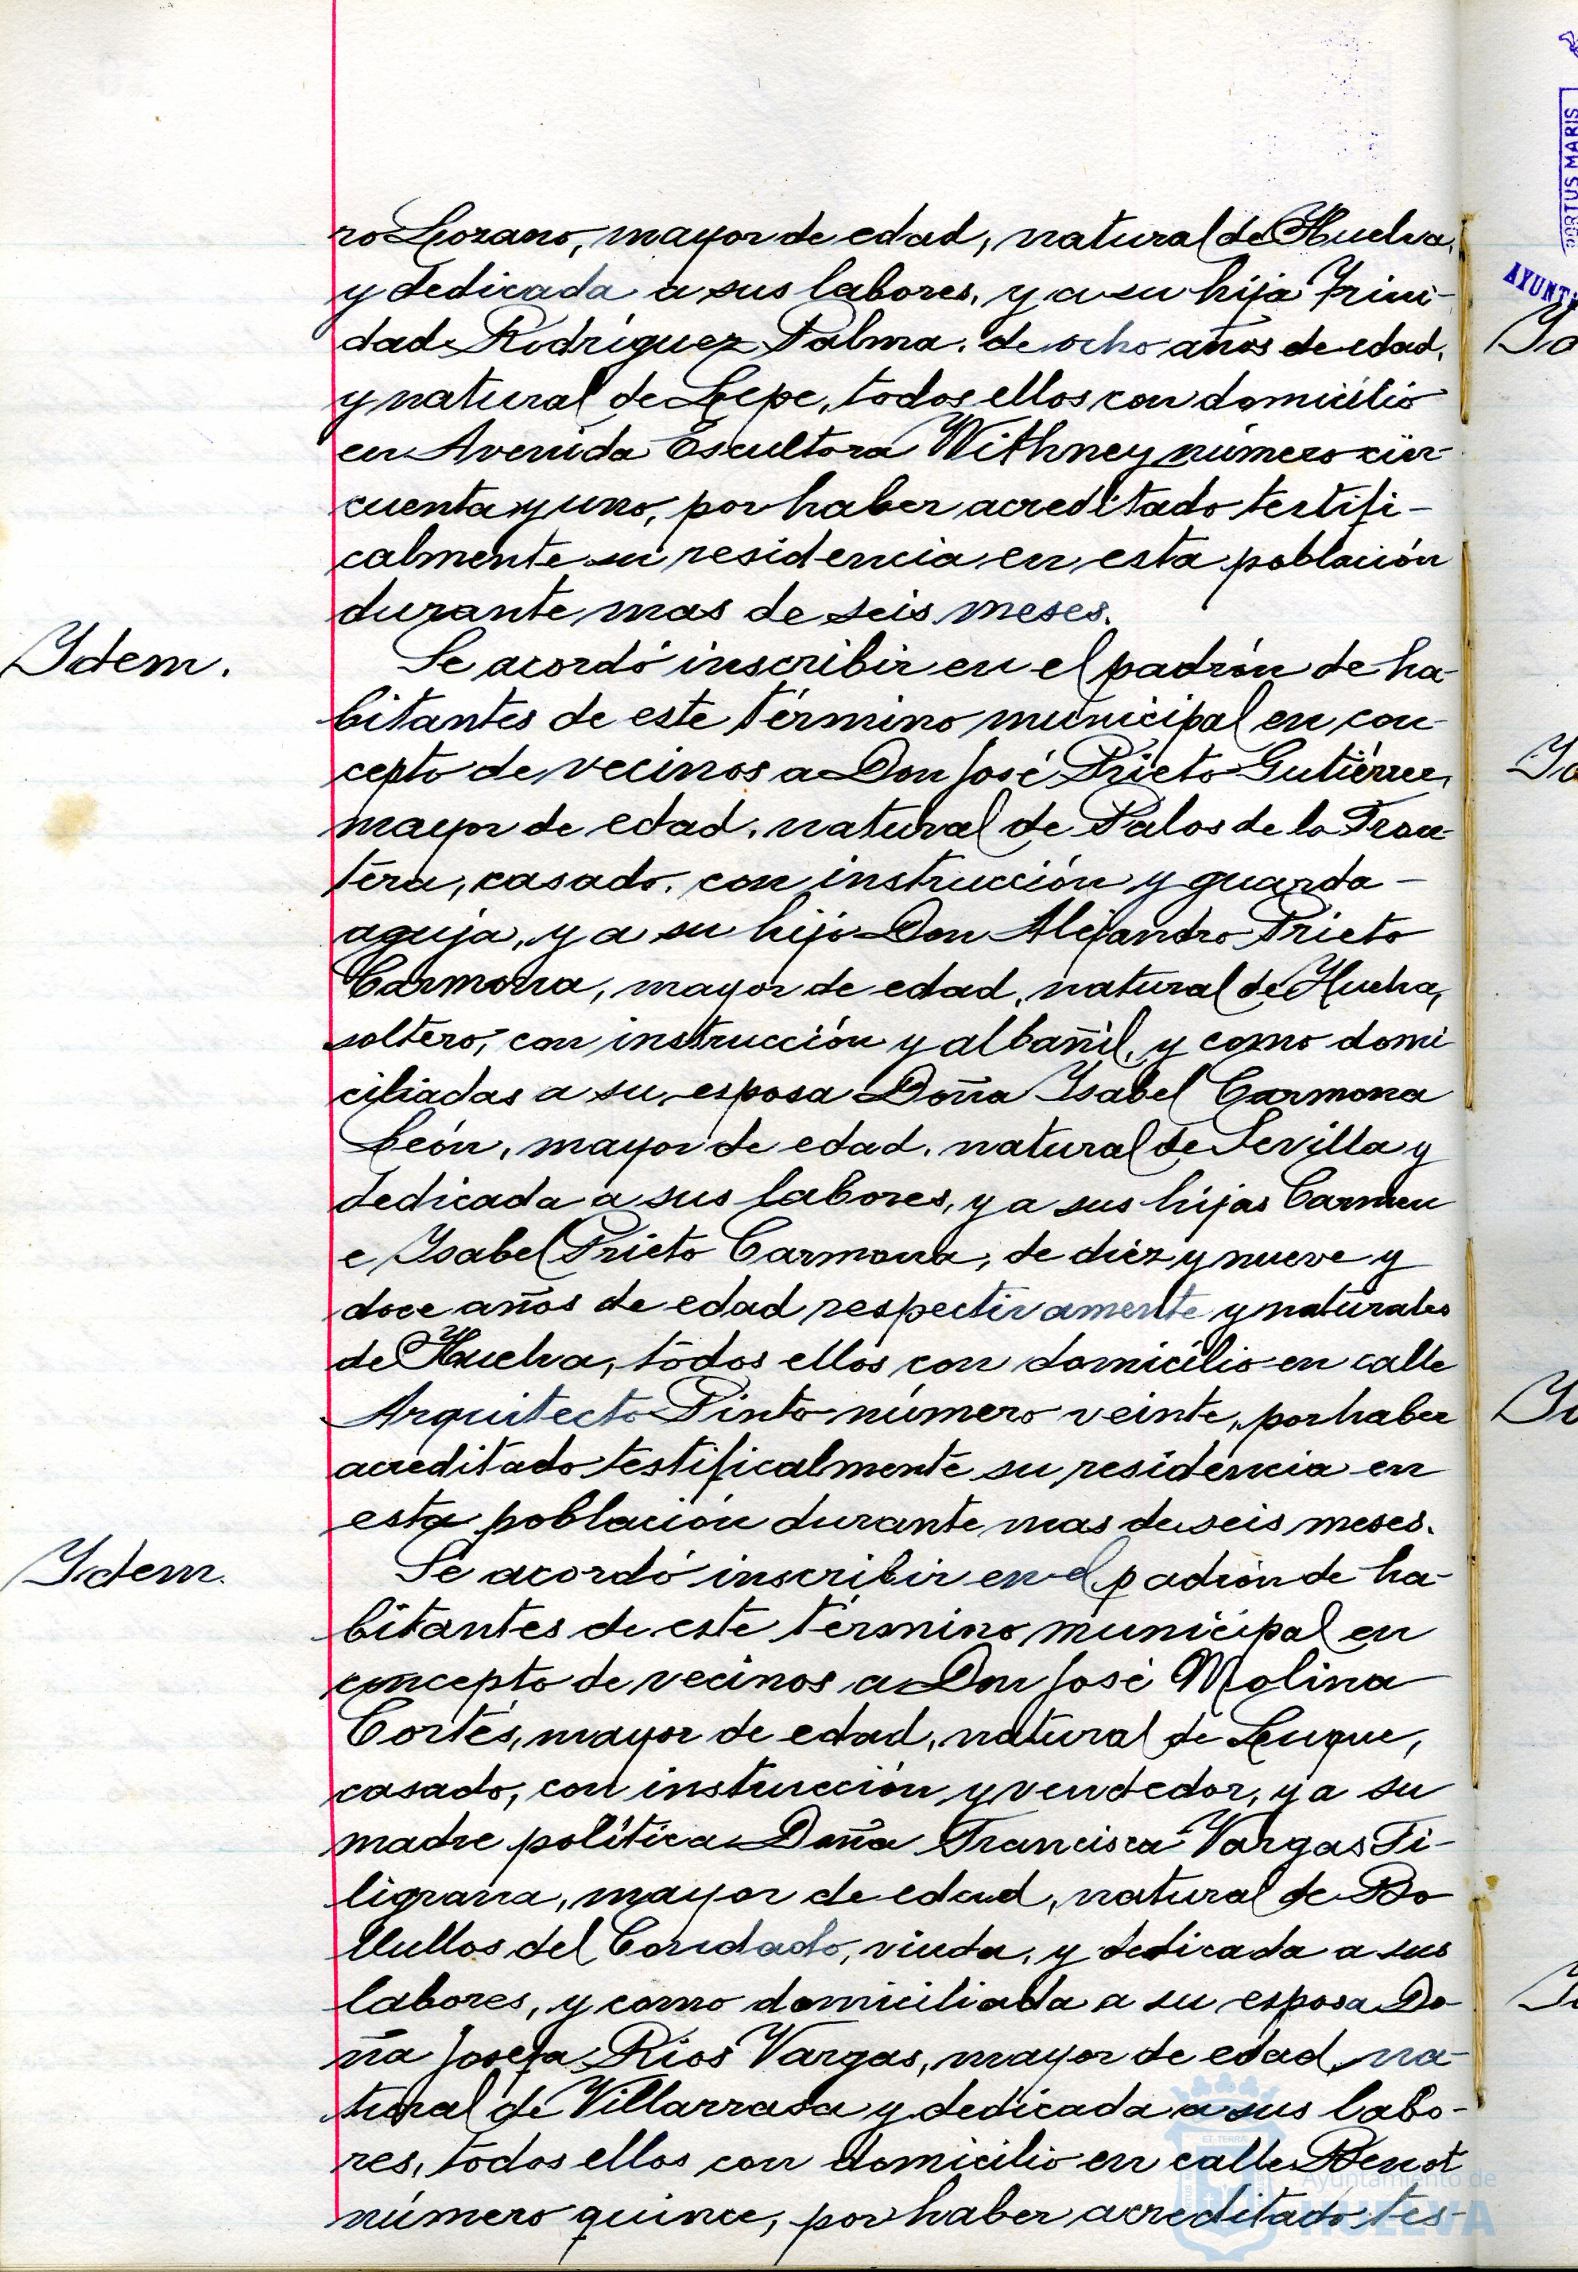 ro Lozano, mayor de edad, natural de Huelva,
y dedicada a sus labores, y a su hija Trini-
dad Rodríguez Palma, de ocho años de edad,
y natural de Lepe, todos ellos con domicilio
en Avenida Escultora Withney número cin-
cuenta y uno, por haber acreditado testifi-
calmente su residencia en esta población
durante mas de seis meses.
Ydem.
Se acordó inscribir en el padrón de ha-
bitantes de este término municipal en con-
cepto de vecinos a Don José Prieto Gutiérrez,
mayor de edad, natural de Palos de la Fron-
tera, casado, con instrucción y guarda-
aguja, y a su hijo Don Alejandro Prieto
Carmona, mayor de edad, natural de Huelva,
soltero, con instrucción y albañil, y como domi
ciliadas a su esposa Doña Ysabel Carmona
León, mayor de edad, natural de Sevilla y
dedicada a sus labores, y a sus hijas Carmen
e Ysabel Prieto Carmona, de diez y nueve y
doce años de edad respectivamente y naturales
de Huelva, todos ellos con domicilio en calle
Arquitecto Pinto número veinte, por haber
acreditado testificalmente su residencia en
esta población durante mas de seis meses.
Ydem.
Se acordó inscribir en el padrón de ha-
bitantes de este término municipal en
concepto de vecinos a Don José Molina
Cortés, mayor de edad, natural de Luque,
casado, con instrucción y vendedor, y a su
madre política Doña Francisca Vargas Fi-
ligrana, mayor de edad, natural de Bo
llullos del Condado, viuda, y dedicada a sus
labores, y como domiciliada a su esposa Do-
ña Josefa Rios Vargas, mayor de edad, na-
tural de Villarrasa y dedicada a sus labo-
res, todos ellos con domicilio en calle Benot
número quince, por haber acreditado tes-
PORTUS MARIS
AYUNT
ET TERRA
Ayuntamiento de
HUELVA